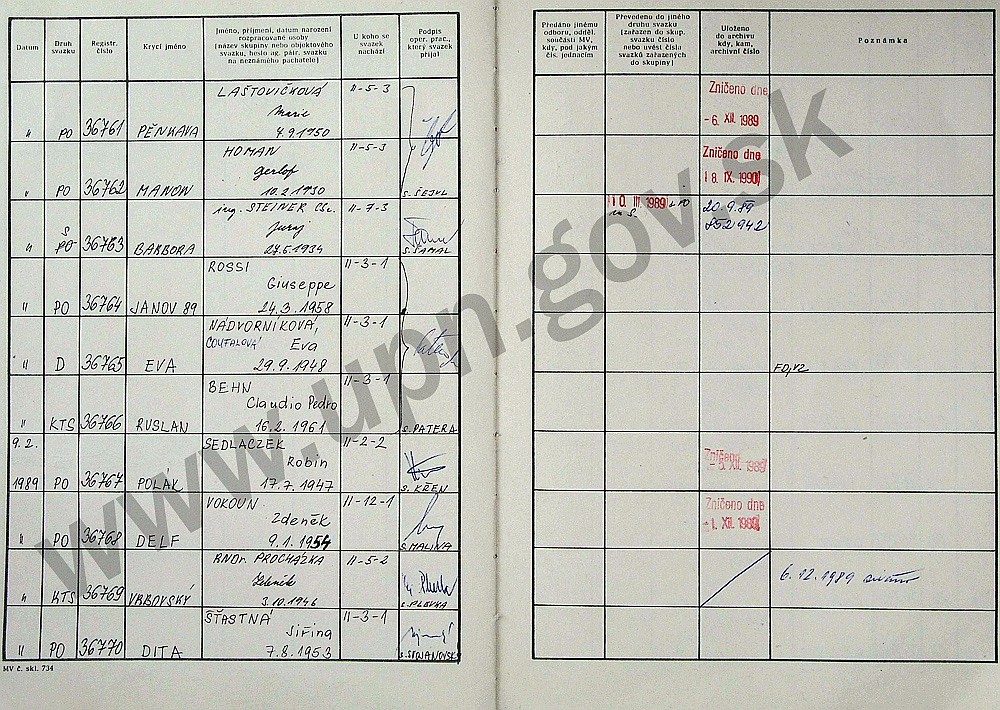 Datum
Druh svazku
Registr. číslo
Krycí jméno
Jméno, příjmení, datum narození
rozpracované osoby
(název skupiny nebo objektového
svazku, heslo ag. pátr. svazku
na neznámého pachatele)
U koho se
svazek
nachází
Podpis
oper. prac.,
který svazek
přijal
Předáno jinému
odboru, odděl.
součásti MV,
kdy, pod jakým
čís. jednacím
Převedeno do jiného
druhu svazku
(zařazen do skup.
svazku čísla
nebo uvést čísla
svazků zařazených
do skupiny)
Uloženo
do archivu
kdy, kam,
archivní číslo
Poznámka
LAŠTOVIČKOVÁ II-5-3
Marie
" PO 36761 PĚNKAVA 4.9.1950
Zničeno dne
- 6. XII. 1989
HOMAN II-5-3
Gerlof
" PO 36762 MANON 10.2.1930 S. ŠEJVL
Zničeno dne
18. IX. 1990
ing. STEINER CSc. II-7-3
S Juraj
" PO 36763 BARBORA 27.5.1934 S. ŠAMAL
10. III. 1989 20.9.89
852942
ROSSI II-3-1
Giuseppe
" PO 36764 JANOV 89 24.3.1958
NÁDVORNÍKOVÁ, II-3-1
COUFALOVÁ Eva
" D 36765 EVA 29.9.1948
BEHN II-3-1
Claudio Pedro
" KTS 36766 RUSLAN 16.2.1961 S. PATERA
9.2. SEDLACZEK II-2-2
Robin
1989 PO 36767 POLÁK 17.7.1947 S. KŘEN
Zničeno
XII. 1989
VOKOUN II-12-1
Zdeněk
" PO 36768 DELF 9.1.1954 S. MALINA
Zničeno dne
- 1. XII. 1989
RNDr. PROCHÁZKA II-5-2
Zdeněk
" KTS 36769 VRBOVSKÝ 3.10.1946 S. PLEVKA
6.12.1989
ŠŤASTNÁ II-3-1
Jiřina
" PO 36770 DITA 7.8.1953
MV č. skl. 734
www.upn.gov.sk